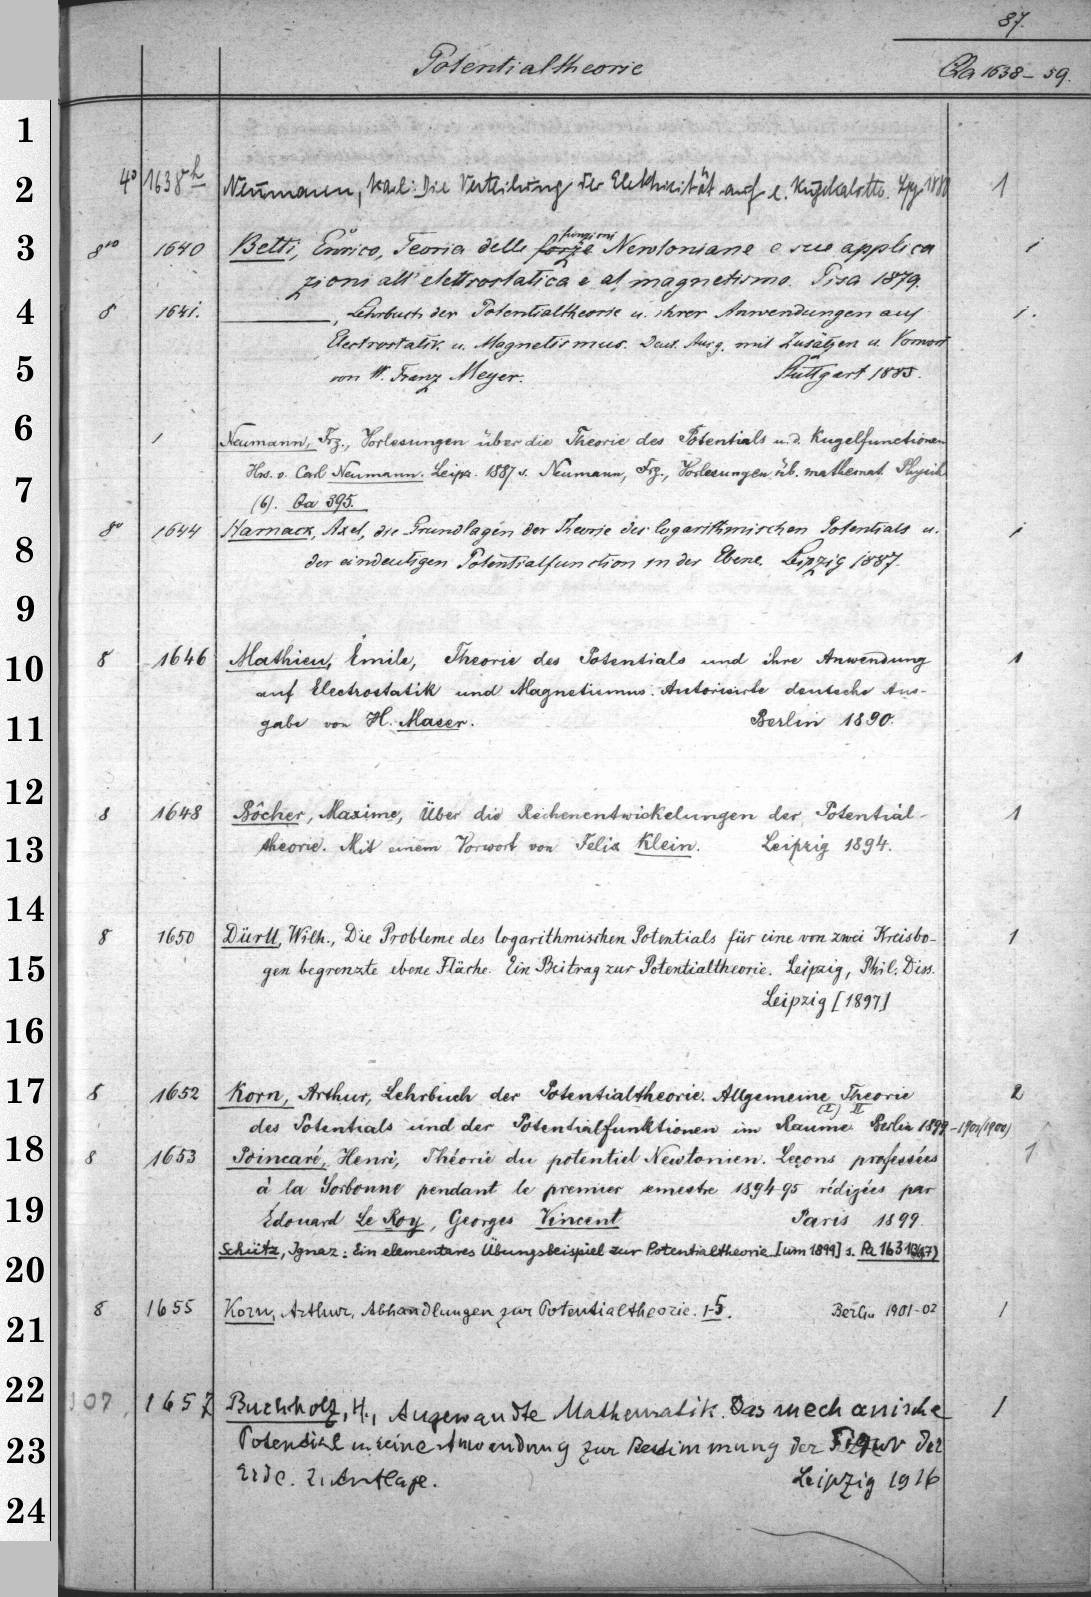 87.
Potentialtheorie Qa 1638-59.
1
2 4° 1638h Neumann, Karl: Die Verteilung der Elektricität auf e. Kugelkalotte. Lpz 1880 1
3 8vo 1640 Betti, Enrico, Teoria delle forze funzioni Newtoniane e sue applica
zioni all' elettrostatica e al magnetismo. Pisa 1879. 1
4 8 1641. ———, Lehrbuch der Potentialtheorie u. ihrer Anwendungen auf 1.
Electrostatik u. Magnetismus. Deut. Ausg. mit Zusätzen u. Vorwort
5 von W. Franz Meyer. Stuttgart 1885.
6 1 Neumann, Frz., Vorlesungen über die Theorie des Potentials u. d. Kugelfunctionen
Hrs. v. Carl Neumann. Leipz. 1887 s. Neumann, Frz., Vorlesungen üb. mathemat. Physik
7 (6). Qa 395.
8° 1644 Harnack, Axel, die Grundlagen der Theorie des logarithmischen Potentials u. 1
8 der eindeutigen Potentialfunction in der Ebene. Leipzig 1887.
9
10 8 1646 Mathieu, Émile, Theorie des Potentials und ihre Anwendung 1
auf Electrostatik und Magnetismus. Autorisirte deutsche Aus-
11 gabe von H. Maser. Berlin 1890.
12 8 1648 Bôcher, Maxime, Über die Reihenentwickelungen der Potential- 1
13 theorie. Mit einem Vorwort von Felix Klein. Leipzig 1894.
14 8 1650 Dürll, Wilh., Die Probleme des logarithmischen Potentials für eine von zwei Kreisbo- 1
15 gen begrenzte ebene Fläche. Ein Beitrag zur Potentialtheorie. Leipzig, Phil. Diss.
Leipzig [1897]
16
17 8 1652 Korn, Arthur, Lehrbuch der Potentialtheorie. Allgemeine Theorie 2
des Potentials und der Potentialfunktionen im Raume. (I) II Berlin 1899-1901(1900)
18 8 1653 Poincaré, Henri, Théorie du potentiel Newtonien. Leçons professées 1
à la Sorbonne pendant le premier semestre 1894-95 rédigées par
19 Édouard Le Roy, Georges Vincent Paris 1899.
Schütz, Ignaz: Ein elementares Übungsbeispiel zur Potentialtheorie [um 1899] s.
20
21 8 1655 Korn, Arthur, Abhandlungen zur Potentialtheorie. 1-5. Berlin 1901-02 1
22 107 1657 Buchholz, H., Angewandte Mathematik. Das mechanische 1
23 Potential u. seine Anwendung zur Bestimmung der Figur der
Erde. 2. Auflage. Leipzig 1916
24